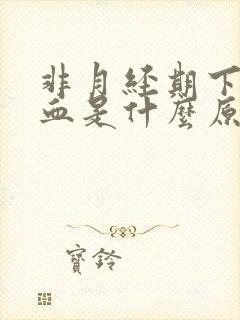 非月經期下
血是什麼原
寶鈴